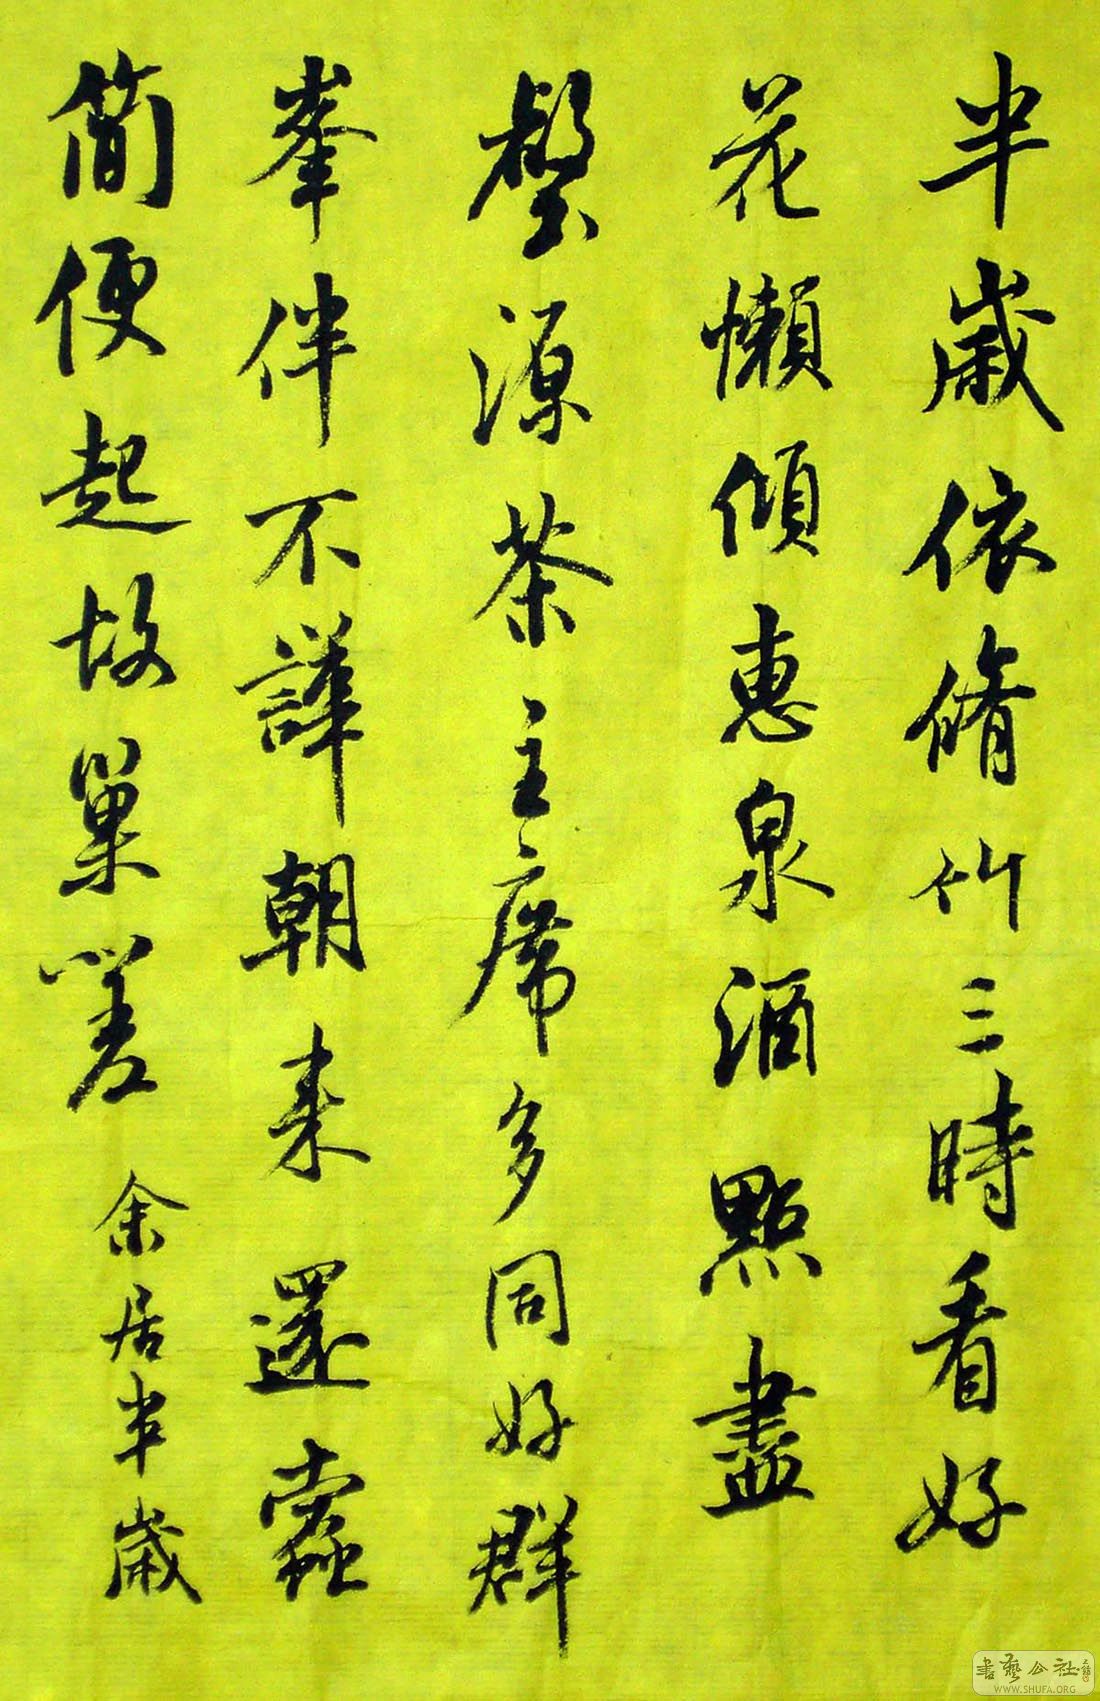 半歲依脩竹三時看好
花懶傾惠泉酒點盡
壑源茶主席多同好群
峯伴不譁朝来還蠹
簡便起故巢嗟 余居半歲
書藝公社
WWW.SHUFA.ORG